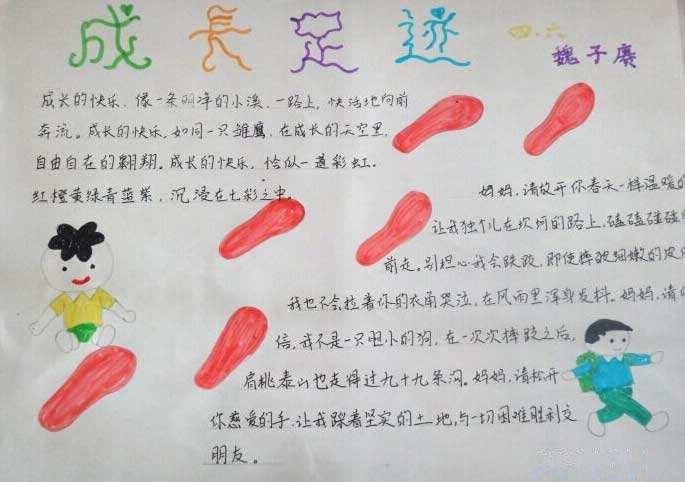 成長足迹
四.六
魏子赓
成长的快乐，像一条明净的小溪，一路上，快活地向前
奔流。成长的快乐，如同一只雏鹰，在成长的天空里，
自由自在的翱翔。成长的快乐，恰似一道彩虹，
红橙黄绿青蓝紫，沉浸在七彩之中。
妈妈，请放开你春天一样温暖的
让我独个儿在坎坷的路上，磕磕碰碰
前走。别担心我会跌跤，即使摔破细嫩的皮
我也不会拉着你的衣角哭泣，在风雨里浑身发抖。妈妈，请
信，我不是一只胆小的狗，在一次次摔跤之后，
肩挑泰山也走得过九十九条沟。妈妈，请松开
你慈爱的手，让我踩着坚实的土地，与一切困难胜利交
朋友。